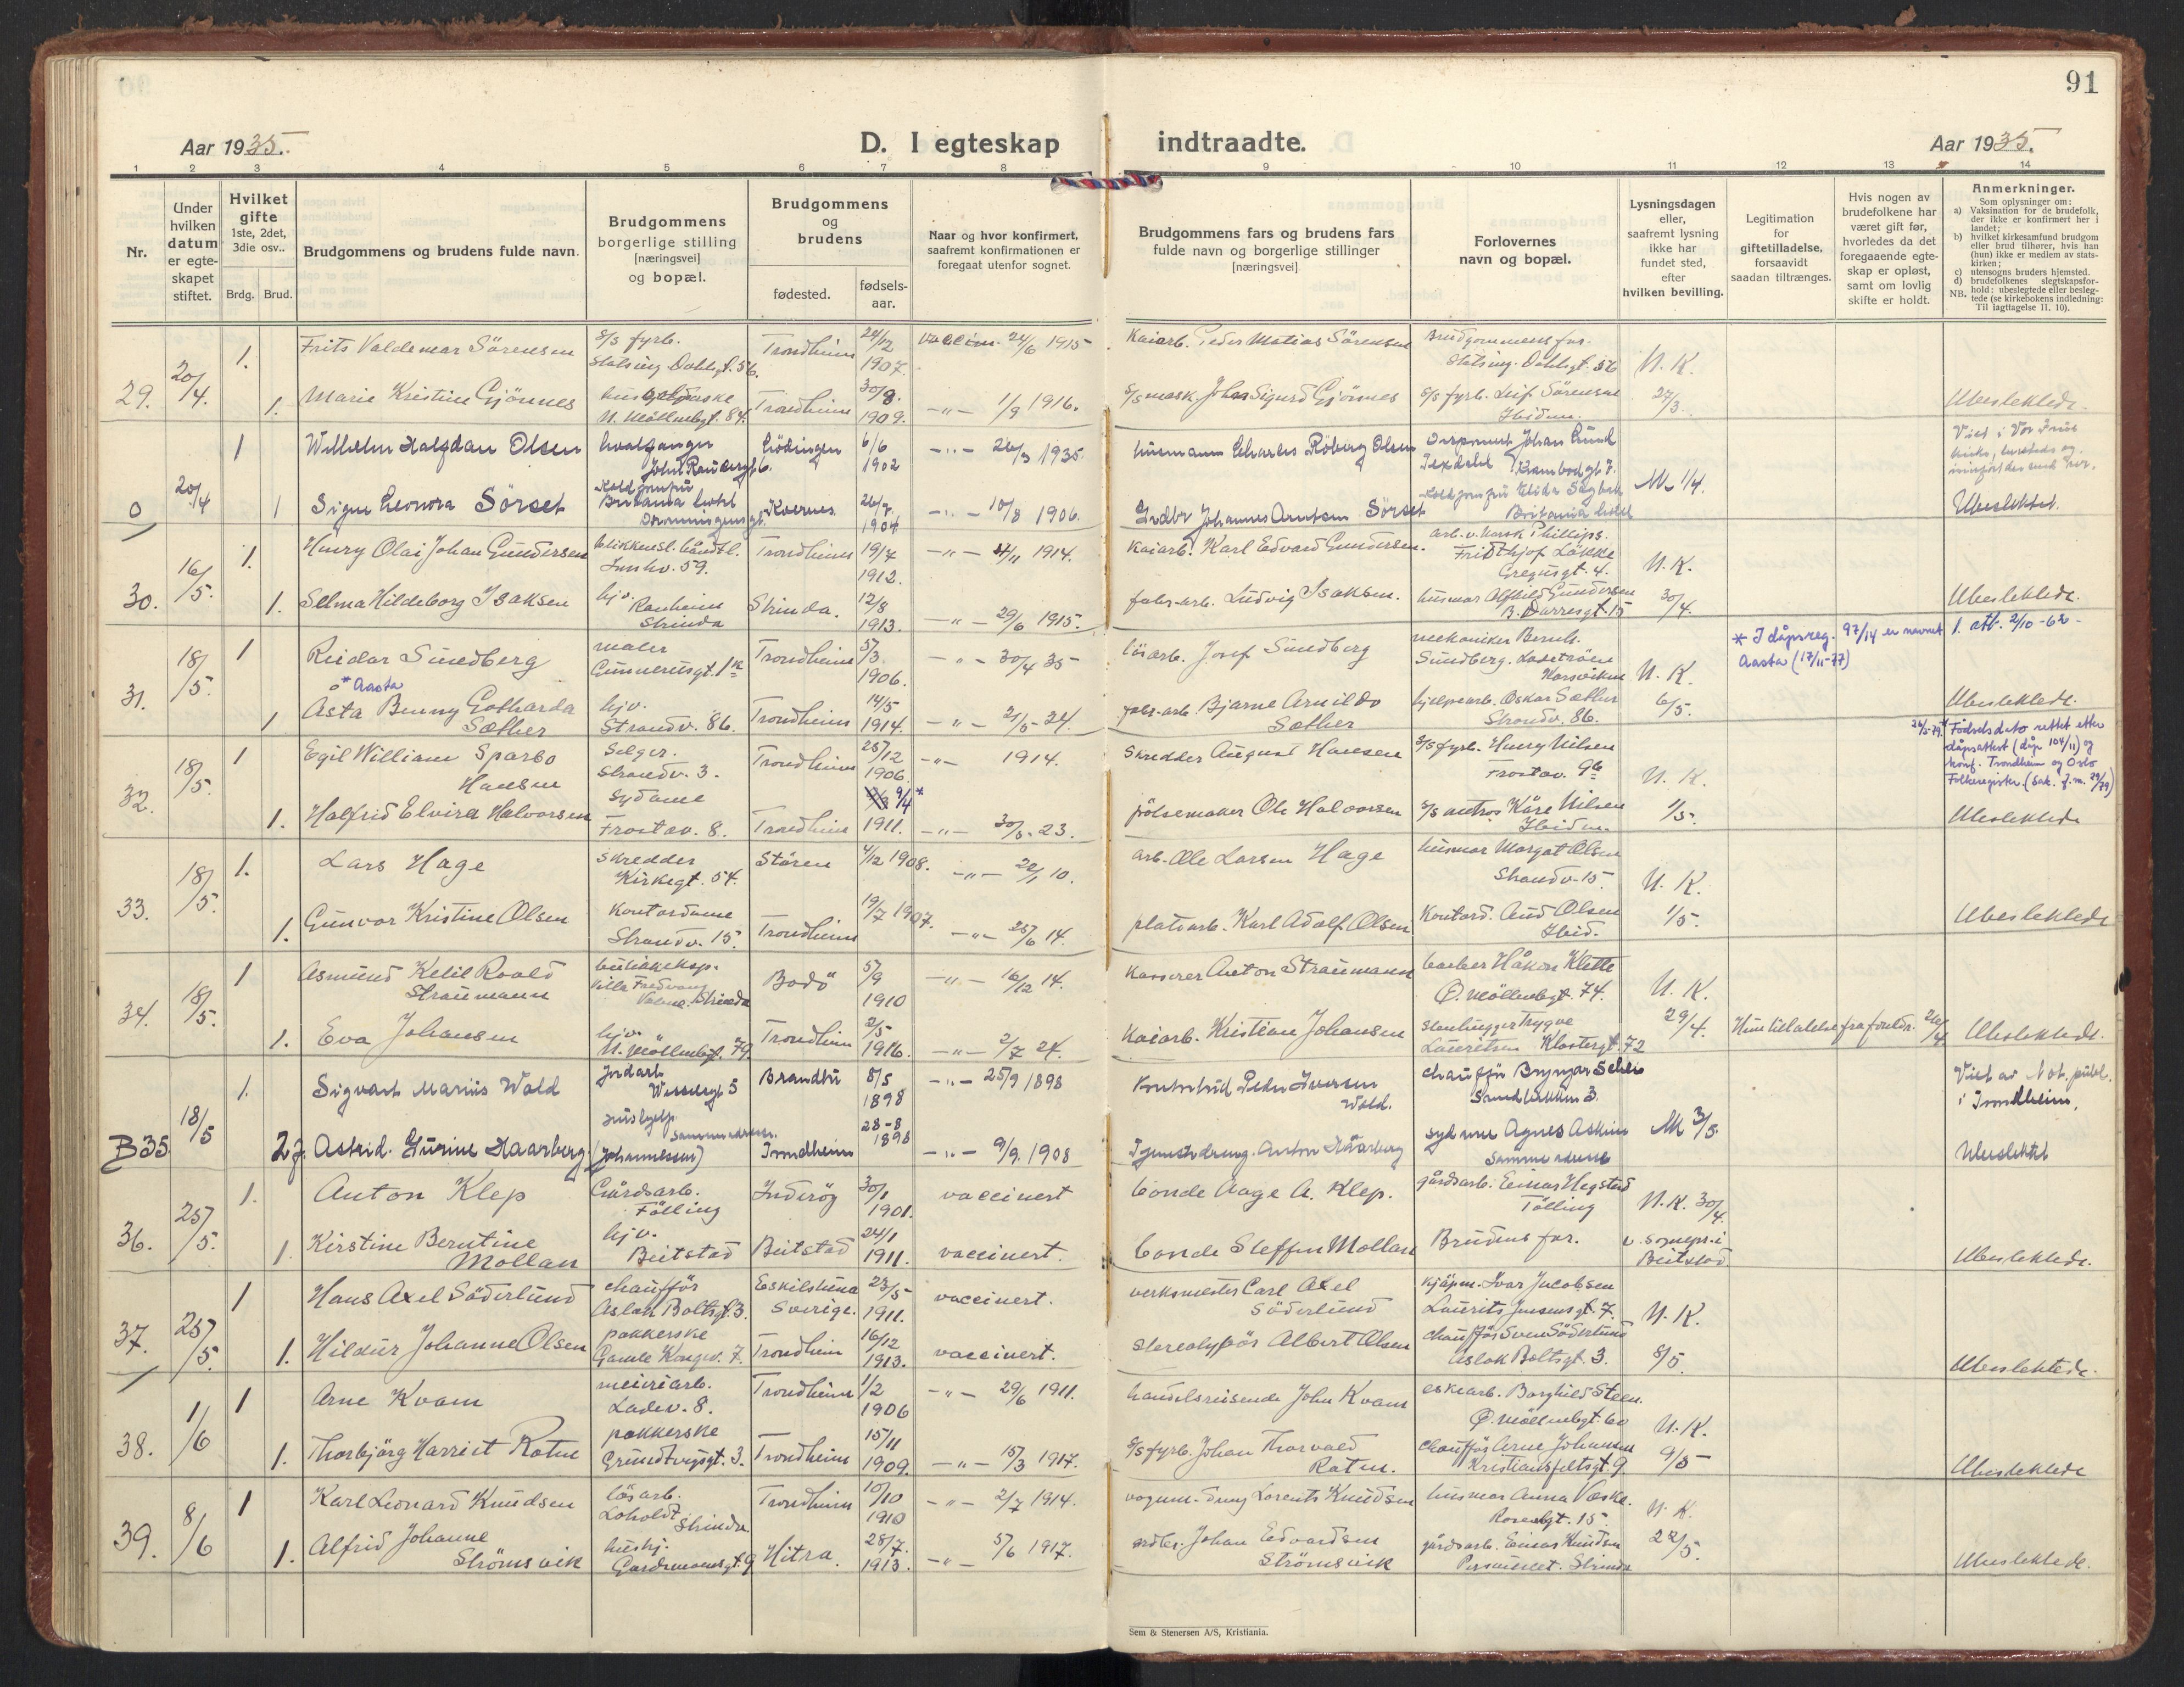 91
Aar 1935.
D. I egteskap indtraadte.
Aar 1935.
1 2 3 4 5 6 7 8 9 10 11 12 13 14
Nr.
Under hvilken datum er egteskapet stiftet.
Hvilket gifte 1ste, 2det, 3die osv..
Brdg. Brud.
Brudgommens og brudens fulde navn.
Brudgommens borgerlige stilling [næringsvei] og bopæl.
Brudgommens og brudens
fødested.
fødselsaar.
Naar og hvor konfirmert, saafremt konfirmationen er foregaat utenfor sognet.
Brudgommens fars og brudens fars fulde navn og borgerlige stillinger [næringsvei]
Forlovernes navn og bopæl.
Lysningsdagen eller, saafremt lysning ikke har fundet sted, efter hvilken bevilling.
Legitimation for giftetilladelse, forsaavidt saadan tiltrænges.
Hvis nogen av brudefolkene har været gift før, hvorledes da det foregaaende egteskap er opløst, samt om lovlig skifte er holdt.
Anmerkninger.
Som oplysninger om:
a) Vaksination for de brudefolk, der ikke er konfirmert her i landet;
b) hvilket kirkesamfund brudgom eller brud tilhører, hvis han (hun) ikke er medlem av statskirken;
c) utensogns bruders hjemsted.
d) brudefolkenes slegtskapsforhold: ubeslegtede eller beslegtede (se kirkebokens indledning:
NB. Til Iagttagelse II. 10).
29. 20/4. 1. Frits Valdemar Sörensen s/s fyrb. Trondheim 24/12 1907. vaccin. 24/6 1915 Kaiarb. Peder Matias Sörensen Brudgommens far.
Statsing. Dahlsgt. 56. Statsing. Dahlsgt. 56 U. K.
1. Marie Kristine Gjönnes Trondheim 30/8. 1909. -"- 1/9 1916. s/s mask. Johan Sigurd Gjönnes s/s fyrb. Leif Sörensen 27/3. Ubeslektede.
N. Möllenbgt. 84. Ibidem.
0 20/4 1 Wilhelm Halfdan Olsen hvalfanger Lödingen 6/6 1902 -"- 26/3 1935 husmann Charles Roberg Olsen Disponent Johan Lund
1 Signe Leonora Sörset Britania hotel Kvernes 26/7 1904 -"- 10/8 1906. Indbr Johannes Arntsen Sörset Britania hotel M 1/4. Ubeslektet.
30. 16/5. 1. Henry Olai Johan Gundersen blikkensl. Trondheim 19/7 1912. -"- 4/11 1914. Kaiarb. Karl Edvard Gundersen. Fridthjof Løkke
Innhv. 59. Gregusgt. 4. U. K.
1. Selma Hildeborg Isaksen hjv. Ranheim Strinda Strinda. 12/8 1913. -"- 29/6 1915. fabr-arb. Ludvig Isaksen. husmor Alfhild Gundersen 30/4. Ubeslektede.
31. 18/5. 1 Reidar Sundberg maler Trondheim 5/3. 1906. -"- 30/4 35 lösarb. Josef Sundberg mekaniker Bernh. Sundberg. U. K.
* I dåpsreg. 97/14 er navnet Aasta (17/11-77)
1. att. 2/10-62-
* Aasta
1 Åsta Benny Gotharda Sæther hjv. Strandv. 86. Trondheim 14/5 1914. -"- 21/5-24. fabr-arb. Bjarne Arnildo Sæther hjelpearb. Oskar Sæther Strandv. 86. 6/5. Ubeslektede.
32. 18/5. 1 Egil William Sparbo Hansen Selger. Strandv. 3. Trondheim 25/12 1906. -"- 1914. Skredder August Hansen s/s fyrb. Henry Nilsen Frostav. 9b U. K.
26/5-79. * Födselsdato rettet etter dåpsattest (dåp 104/11) og konf. Trondheim og Oslo Folkeregister (sak. j. m. 29/79)
1. Halfrid Elvira Halvorsen Sydame Frostav. 8. Trondheim 9/4* 1911. -"- 30/5-23. pölsemaker Ole Halvorsen s/s matros Kåre Nilsen Ibidem 1/5. Ubeslektede
33. 18/5. 1. Lars Hage Skredder Kirkegt. 54. Stören 4/12 1908. -"- 22/1 10. arb. Ole Larsen Hage husmor Margot Olsen Strandv. 15. U. K.
1. Gunvor Kristine Olsen Kontordame Strandv. 15. Trondheim 19/7 1907. -"- 25/6 14. platarb. Karl Adolf Olsen Kontord. Aud Olsen Ibid. 1/5. Ubeslektede
34. 18/5. 1 Asmund Ketil Roald Straumann butikkeksp. Strinda Bodö 5/9 1910 -"- 16/12 14. Kasserer Anton Straumann barber Håkon Klette Ö. Möllenbgt. 74. U. K.
1. Eva Johansen hjv. N. Möllenbgt. 79. Trondheim 2/5 1916. -"- 2/7 24. Kaiarb. Kristian Johansen Stenhugger Trygve Lauritsen Klostergt. 72 29/4. Hun tillatelse fra foreldr. 26/4 Ubeslektede.
B35 18/5 1. Sigvart Marius Wold Indarb Wesselsgt 5 Brandbu 8/5 1898 -"- 25/9 1898 Peder Iversen Wold. Sandbakken 3. Viet av Not. publ. i Trondheim,
2 g. Astrid Gurine Haarberg (Johannessen) Trondheim 28-8 1898 -"- 9/9. 1908 Tjenestedreng. Anton Haarberg sydame Agnes Askim Samme adresse M 3/5. Ubeslektet
36. 25/5. 1. Anton Klep Gårdsarb. Tölling Inderöy 30/1 1901. vaccinert bonde Aage A. Klep. gårdsarb. Einar Hegstad Tölling U. K. 30/4.
1. Kirstine Berntine Mollan hjv. Beitstad Beitstad 24/1 1911. vaccinert. bonde Steffen Mollan Brudens far. v. sognepr. i Beitstad Ubeslektede.
37. 25/5. 1 Hans Axel Söderlund chaufför Aslak Boltsgt. 3. Eskilstuna Sverige. 23/5 1911. vaccinert. verksmester Carl Axel Söderlund kjöpm. Ivar Jacobsen Laurits Jensensgt. 7. U. K.
1. Hildur Johanne Olsen pakkerske Gamle Kongev. 7. Trondheim 16/12 1913. vaccinert. stereotypör Albert Olsen chaufför Sven Söderlund Aslak Boltsgt. 3. 8/5. Ubeslektede.
38. 1/6 1 Arne Kvam meieriarb. Ladev. 8. Trondheim 1/2 1906 -"- 29/6 1911. handelsreisende John Kvam eskearb. Borghild Steen. Ö. Möllenbgt. 60 U. K.
1. Thorbjörg Harriet Roten pakkerske Grundtvigsgt. 3. Trondheim 15/11 1909. -"- 15/3 1917. s/s fyrb. Johan Thorvald Roten. chaufför Arne Johansen Kristiansfeltsgt. 9. 9/5 Ubeslektede
39. 8/6 1 Karl Leonard Knudsen lösarb. Loholdt Strinda Trondheim 10/10 1910 -"- 2/7 1914. vognm. dreng Lorents Knudsen husmor Anna Væske. Rosenbgt. 15. U. K.
1. Alfrid Johanne Strömsvik hushj. Gardemoensgt. 9 Hitra. 28/7. 1913. -"- 5/6 1917. ardbr. Johan Edvardsen Strömsvik gårdsarb. Einar Knudsen Strinda 22/5. Ubeslektede.
Sem & Stenersen A/S, Kristiania.